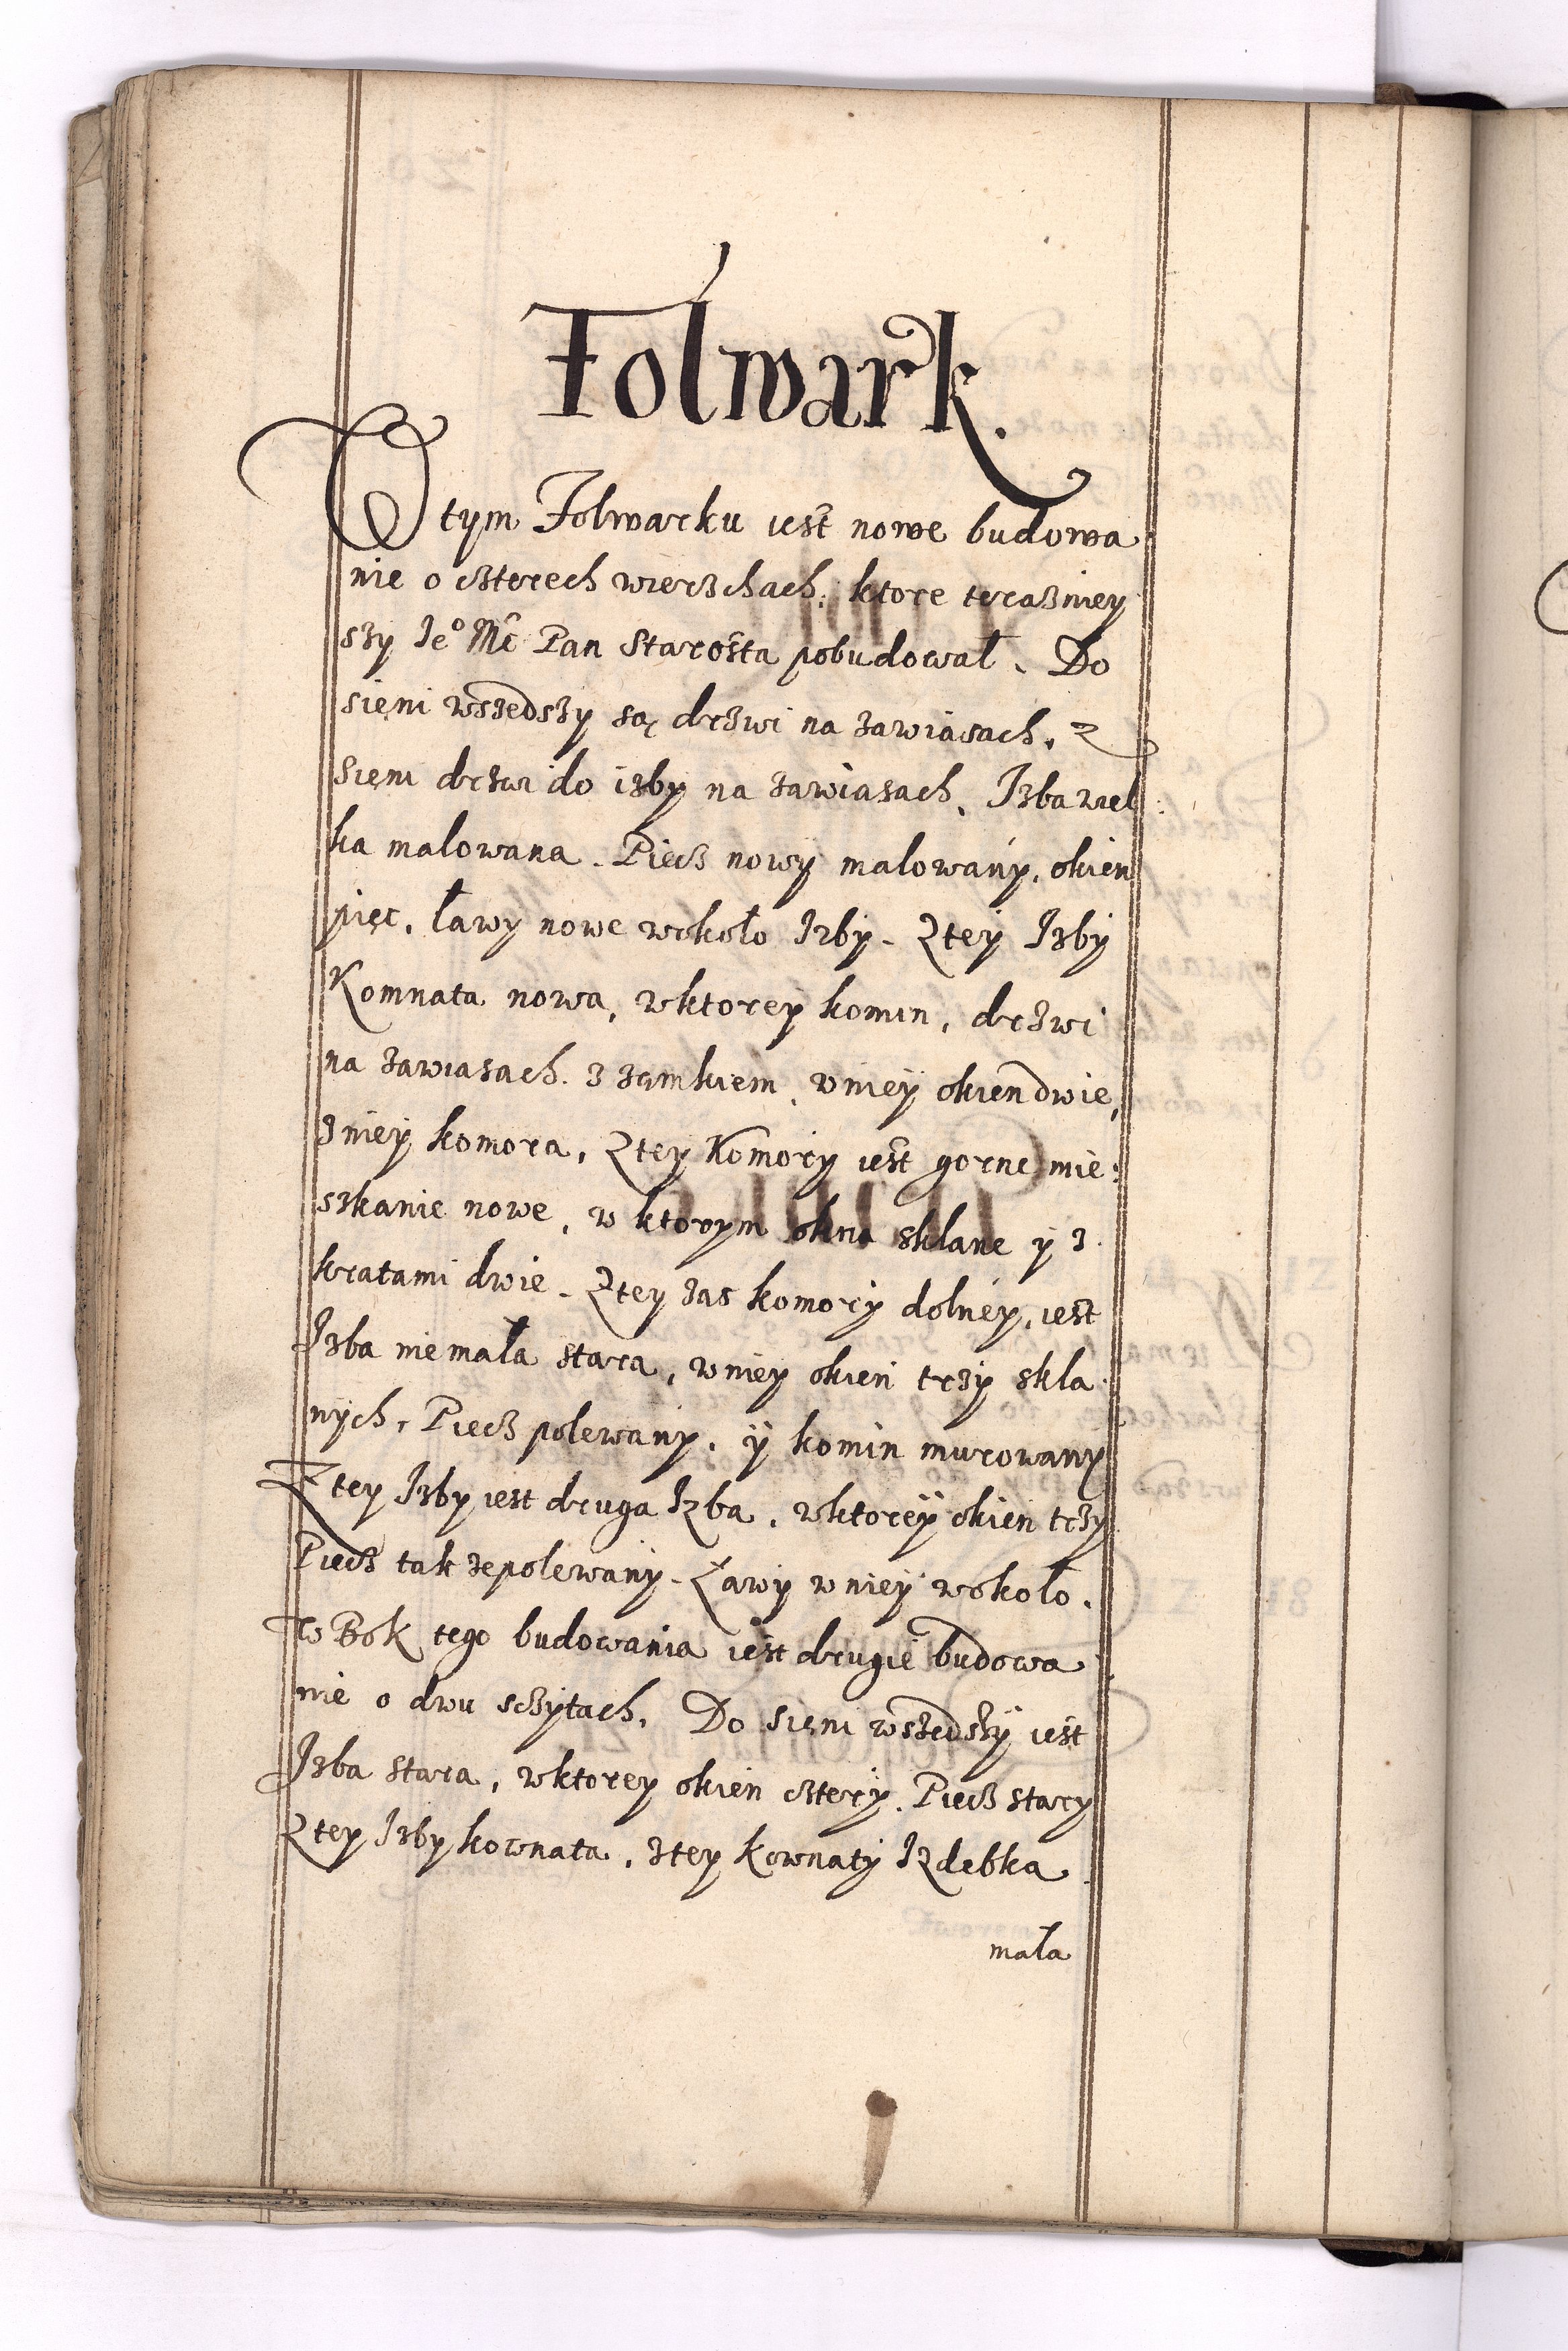 Folwark.
W tym Folwarku iest nowe budowa
nie o czterech wierzchach, ktore terazniey
szy Jeº Mć Pan Starosta pobudował. Do
sieni wszedszy są drzwi na zawiasach. z
Sieni drzwi do izby na zawiasach. Izba wiel
ka malowana. Piecz nowy malowany, okien
pięc, ławy nowe wokoło Izby. Z tey Izby
Komnata nowa, w ktorey komin, drzwi
na zawiasach z zamkiem, w niey okien dwie,
z niey komora, Z tey Komory iest gorne mie:
szkanie nowe, w ktorym okna sklane y z
kratami dwie. Z tey zas komory dolney, iest
Izba niemała stara, w niey okien trzy skla
nych, Piecz polewany, y komin murowany
Z tey Izby iest druga Izba, w ktorey okien trzy
Piecz takze polewany. Ławy w niey wokoło.
W Bok tego budowania iest drugie budowa
nie o dwu sczytach. Do Sieni wszedszy iest
Izba stara, w ktorey okien cztery, Piecz stary
Z tey Izby kownata, z tey kownaty Izdebka
mała